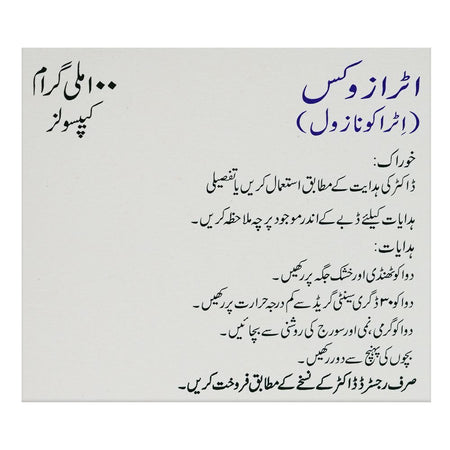 اٹرازوکس
(اِٹراکونازول)
۱۰۰ ملی گرام
کیپسولز
خوراک:
ڈاکٹر کی ہدایت کے مطابق استعمال کریں یا تفصیلی
ہدایات کیلئے ڈبے کے اندر موجود پرچہ ملاحظہ کریں۔
ہدایات:
دوا کو ٹھنڈی اور خشک جگہ پر رکھیں۔
دوا کو ۳۰ ڈگری سینٹی گریڈ سے کم درجہ حرارت پر رکھیں۔
دوا کو گرمی، نمی اور سورج کی روشنی سے بچائیں۔
بچوں کی پہنچ سے دور رکھیں۔
صرف رجسٹرڈ ڈاکٹر کے نسخے کے مطابق فروخت کریں۔